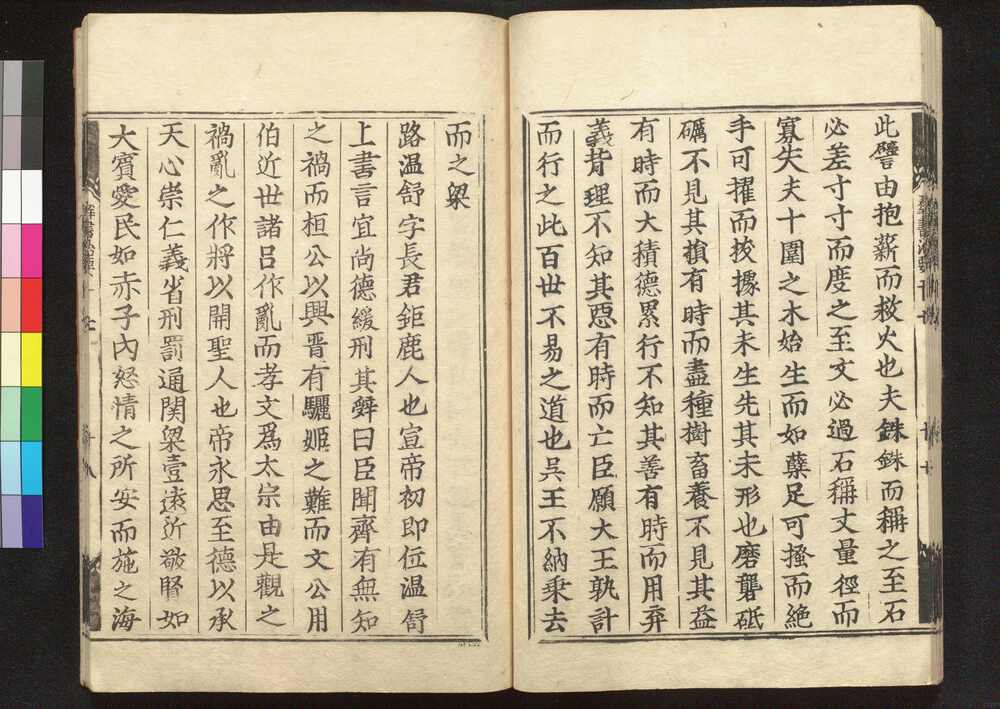 此譬由抱薪而救火也夫銖銖而稱之至石
必差寸寸而度之至丈必過石稱丈量徑而
寡失夫十圍之木始生而如蘖足可搔而絕
手可擢而拔據其未生先其未形也磨礱砥
礪不見其損有時而盡種樹畜養不見其益
有時而大積德累行不知其善有時而用弃
義背理不知其惡有時而亡臣願大王孰計
而行之此百世不易之道也吳王不納乘去
而之梁
路溫舒字長君鉅鹿人也宣帝初即位溫舒
上書言宜尚德緩刑其辭曰臣聞齊有無知
之禍而桓公以興晋有驪姬之難而文公用
伯近世諸呂作亂而孝文爲太宗由是觀之
禍亂之作將以開聖人也帝永思至德以承
天心崇仁義省刑罰通関梁壹遠近敬賢如
大賓愛民如赤子內恕情之所安而施之海